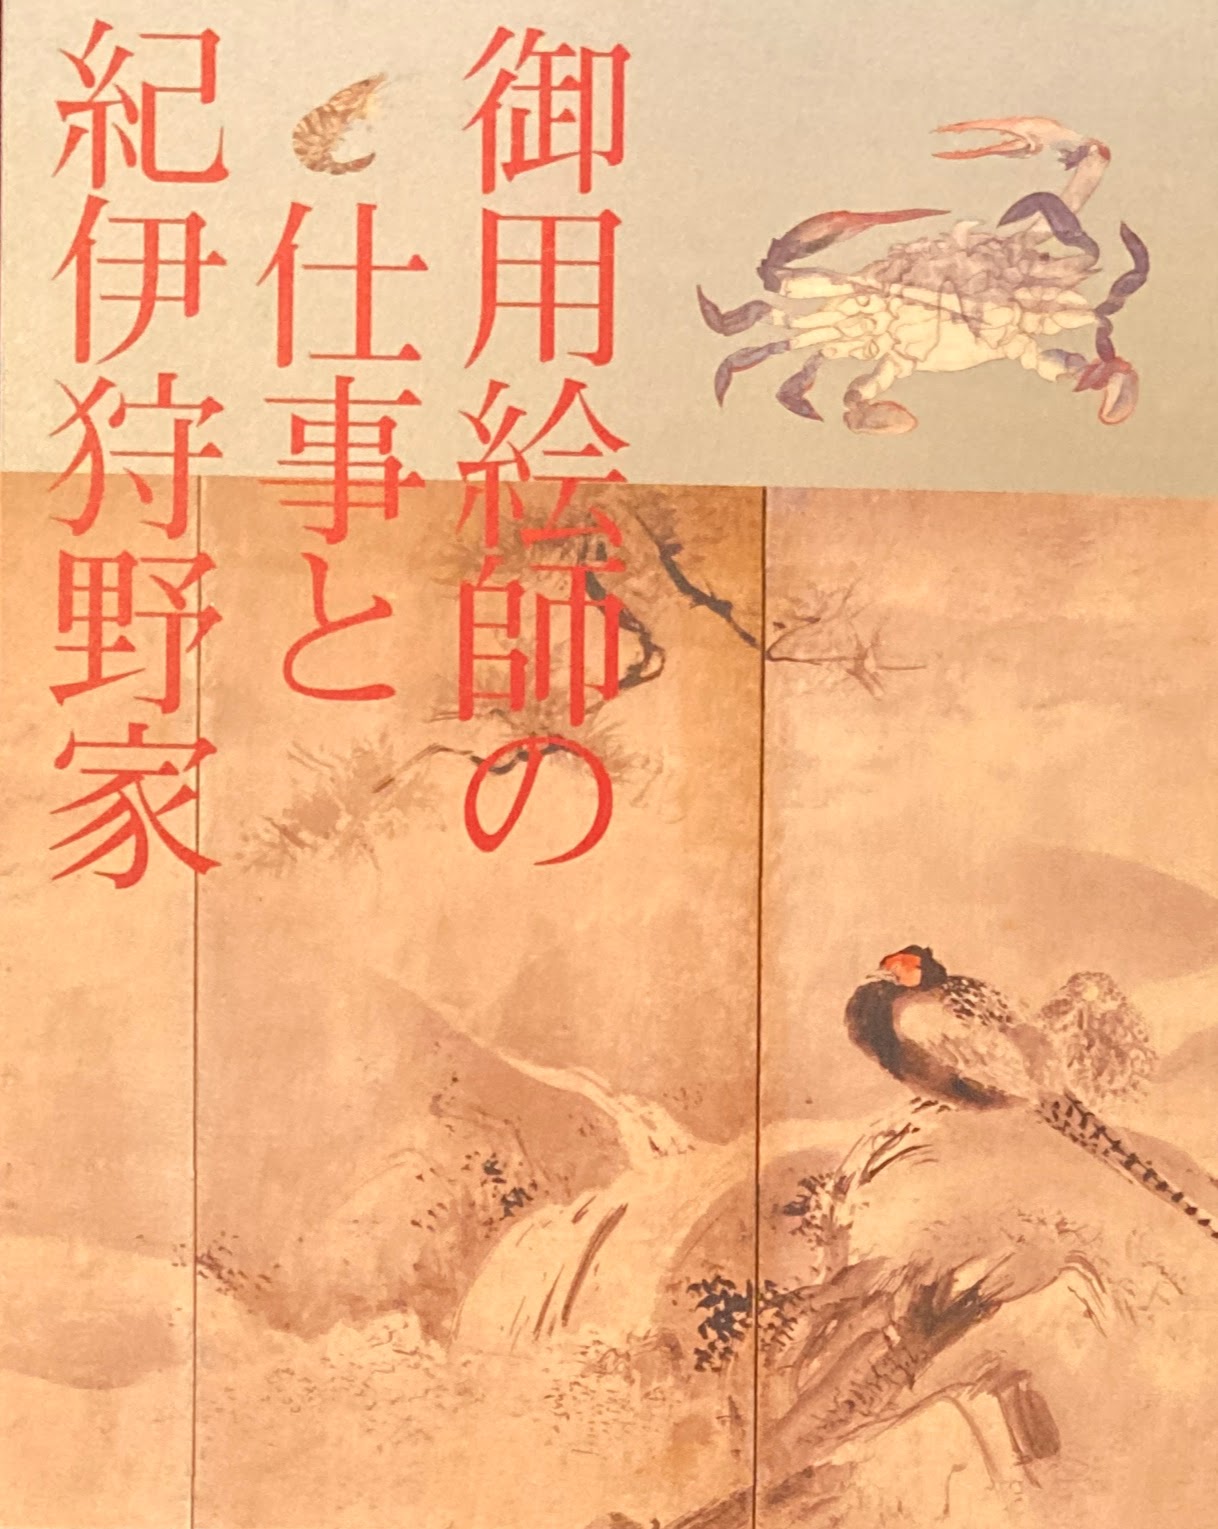 御用絵師の
仕事と
紀伊狩野家